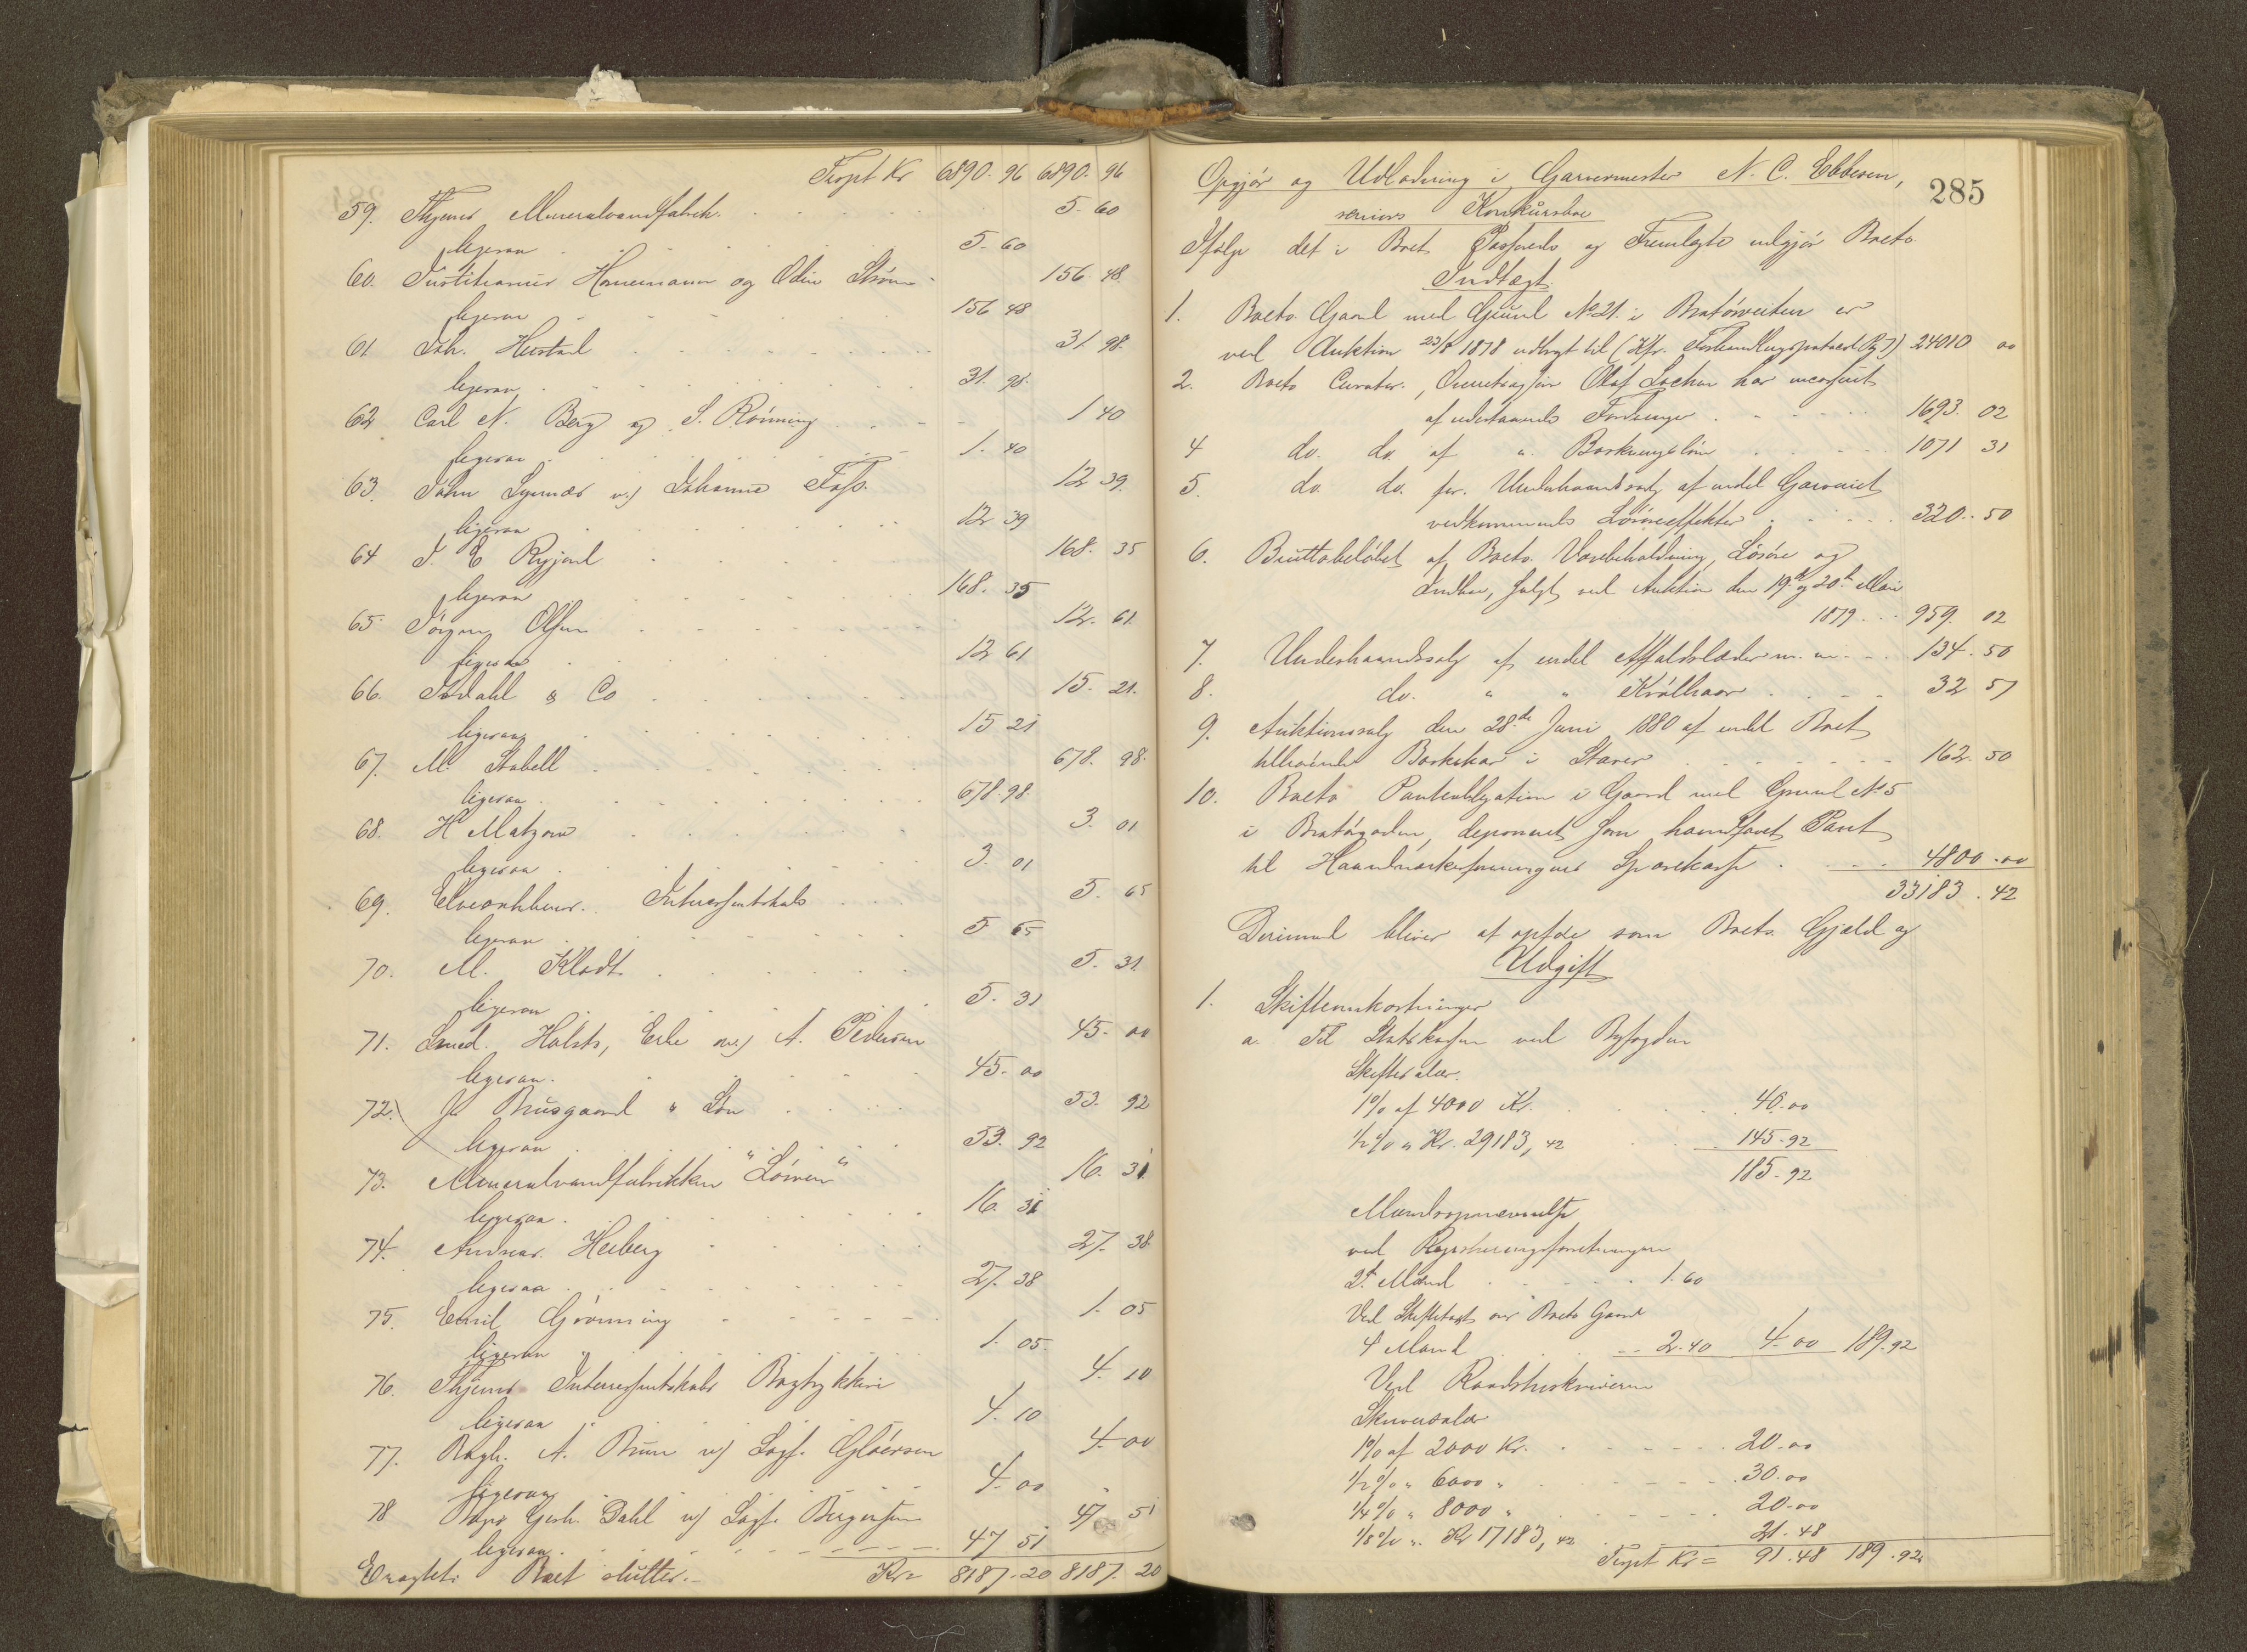 Trspt Kr 6890. 96 6890. 96
59. Thjems Mineralvandfabrik. 5. 60
ligesaa 5. 60
60. Justitiarius Hornemann og Odin Strøm 156 48.
ligesaa 156 48
61 Joh. Hustad 31. 98.
ligesaa 31. 98.
62 Carl N. Berg og S. Rønning 1 40
ligesaa 1. 40
63. John v/ Johannes 12 39.
ligesaa 12 39
64 J. E 168. 35
ligesaa 168. 35
65 Jørgen Olsen 12. 61.
ligesaa 12 61
66. & Co 15. 21.
ligesaa 15 21
67. M. Stabell 678. 98.
ligesaa 678. 98.
68. H Matzow 3. 01
ligesaa 3. 01
69. Interessentskab 5. 65
ligesaa 5 65
70. M. Klodt 5. 31.
ligesaa 5. 31
71. Smed. Holsts, Enke v/ A. Pedersen 45. 00
ligesaa. 45. 00
72. Jo Brusgaard & Søn 53. 92
ligesaa 53. 92
73. Mineralvandfabrikken "Løven" 16. 31
ligesaa. 16. 31
74. Andreas. Heiberg 27. 38
ligesaa 27. 38
75. Emil Grønning 1. 05
ligesaa 1. 05.
76. Thjems Interessentskabs Bogtrykkeri 4. 10
ligesaa 4. 10
77. Bogh. A. Brun v/ Sagf. Gløersen 4. 00
ligesaa 4. 00
78 Gerh. Dahl v/ Sagf. Birgersen 47 51
ligesaa. 47 51
Boet slutter.- Kr= 8187. 20 8187. 20
285
Opgjør og Udlodning i Garvermester N. C. Ebbesen,
seniors Konkursbo
Ifølge det i Boet Passerede og Fremlagte udgjør Boets
Indtægt.
1. Boets Gaard med Grund No 21. i Bratørveiten er
ved Auktion 23/8 1878 udbragt til (Kfr. Forhandlingsprotocol Pg 7) 24010 00
2. Boets Curator., Overretssagfører Olaf Lochen har incasseret
af udestaaende Fordringer 1693. 02
4 do. do. af " Barkningsløn 1071 31
5. do. do. for. Underhaandssalg af endel Garveriet
vedkommende Løsøreeffekter 320. 50
6. Bruttobeløbet af Boets Varebeholdning, Løsøre og
Indbo, solgt ved Auktion den 19de og 20de Mai
1879 959. 02
7. Underhaandssalg af endel Affaldslæder m. m. 134. 50
8. do. " " Krølhaar 32 57
9. Auktionssalg den 28de Juni 1880 af endel Boet
tilhørende Barkekar i Staver 162. 50
10. Boets Pantobligation i Gaard med Grund No 5
i Bratørgaden, deponeret som haandfaaet Pant
til Haandværkerforeningens Sparekasse 4800. 00
33183. 42
Derimod bliver at opføre som Boets Gjæld og
Udgift
1. Skifteomkostninger
a. Til Statskassen ved Byfogden
Skiftesalær.
1% af 4000 Kr. 40. 00
1/2% " Kr. 29183, 42 145. 92
185. 92
Mandsopnævnelse
ved Registreringsforretningen
2de Mænd 1. 60
Ved Skiftetaxt over Boets Gaard
4 Mænd 2. 40 4. 00 189. 92
Ved Raadstueskriveren
Skriversalær
1% af 2000 Kr. 20. 00
1/2% " 6000 " 30. 00
1/4% " 8000 " 20. 00
1/8% " Kr 17183, 42 21. 48
Trspt Kr= 91. 48 189. 92